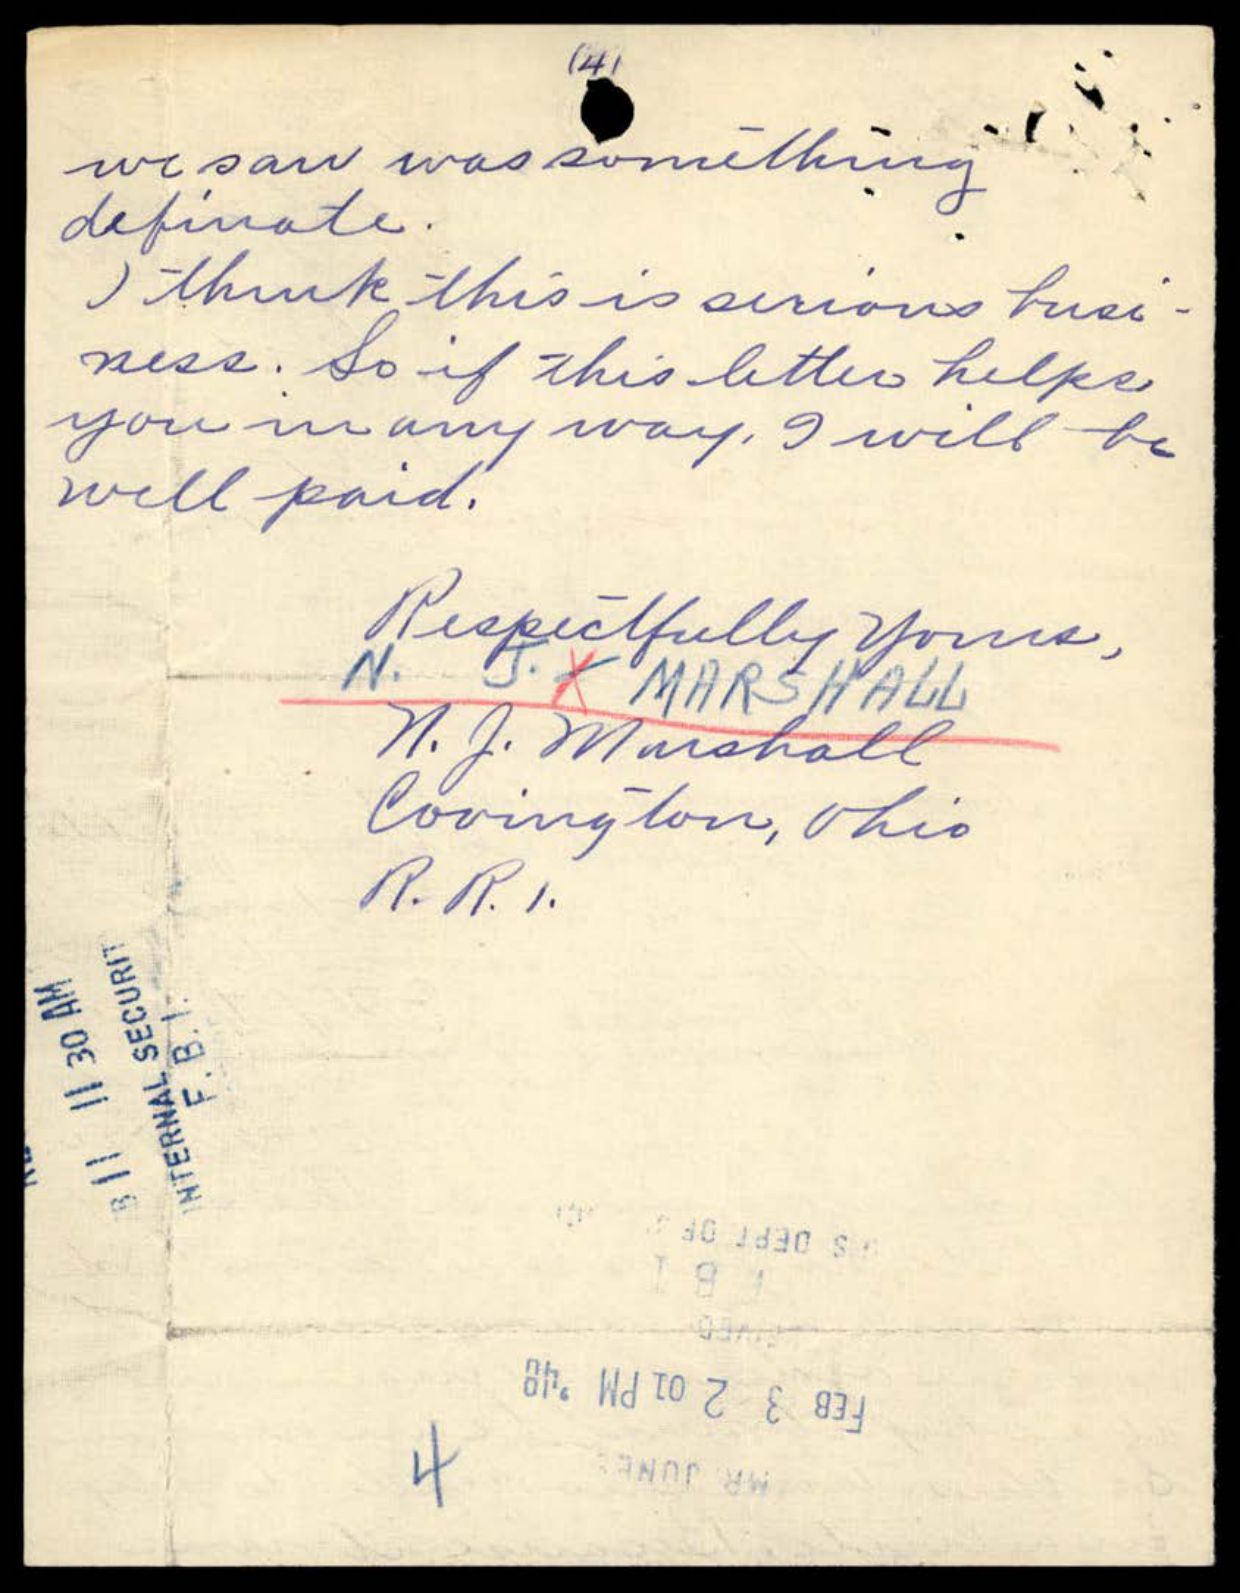 (4)
we saw was something
definate.
I think this is serious busi-
ness. So if this letter helps
you in any way, I will be
well paid.
Respectfully Yours,
N. J. X MARSHALL
N. J. Marshall
Covington, Ohio
R. R. 1.
11 11 30 AM
INTERNAL SECURIT
F. B. I.
U S DEPT OF
F B I
FEB 3 2 01 PM '40
MR JONES
4